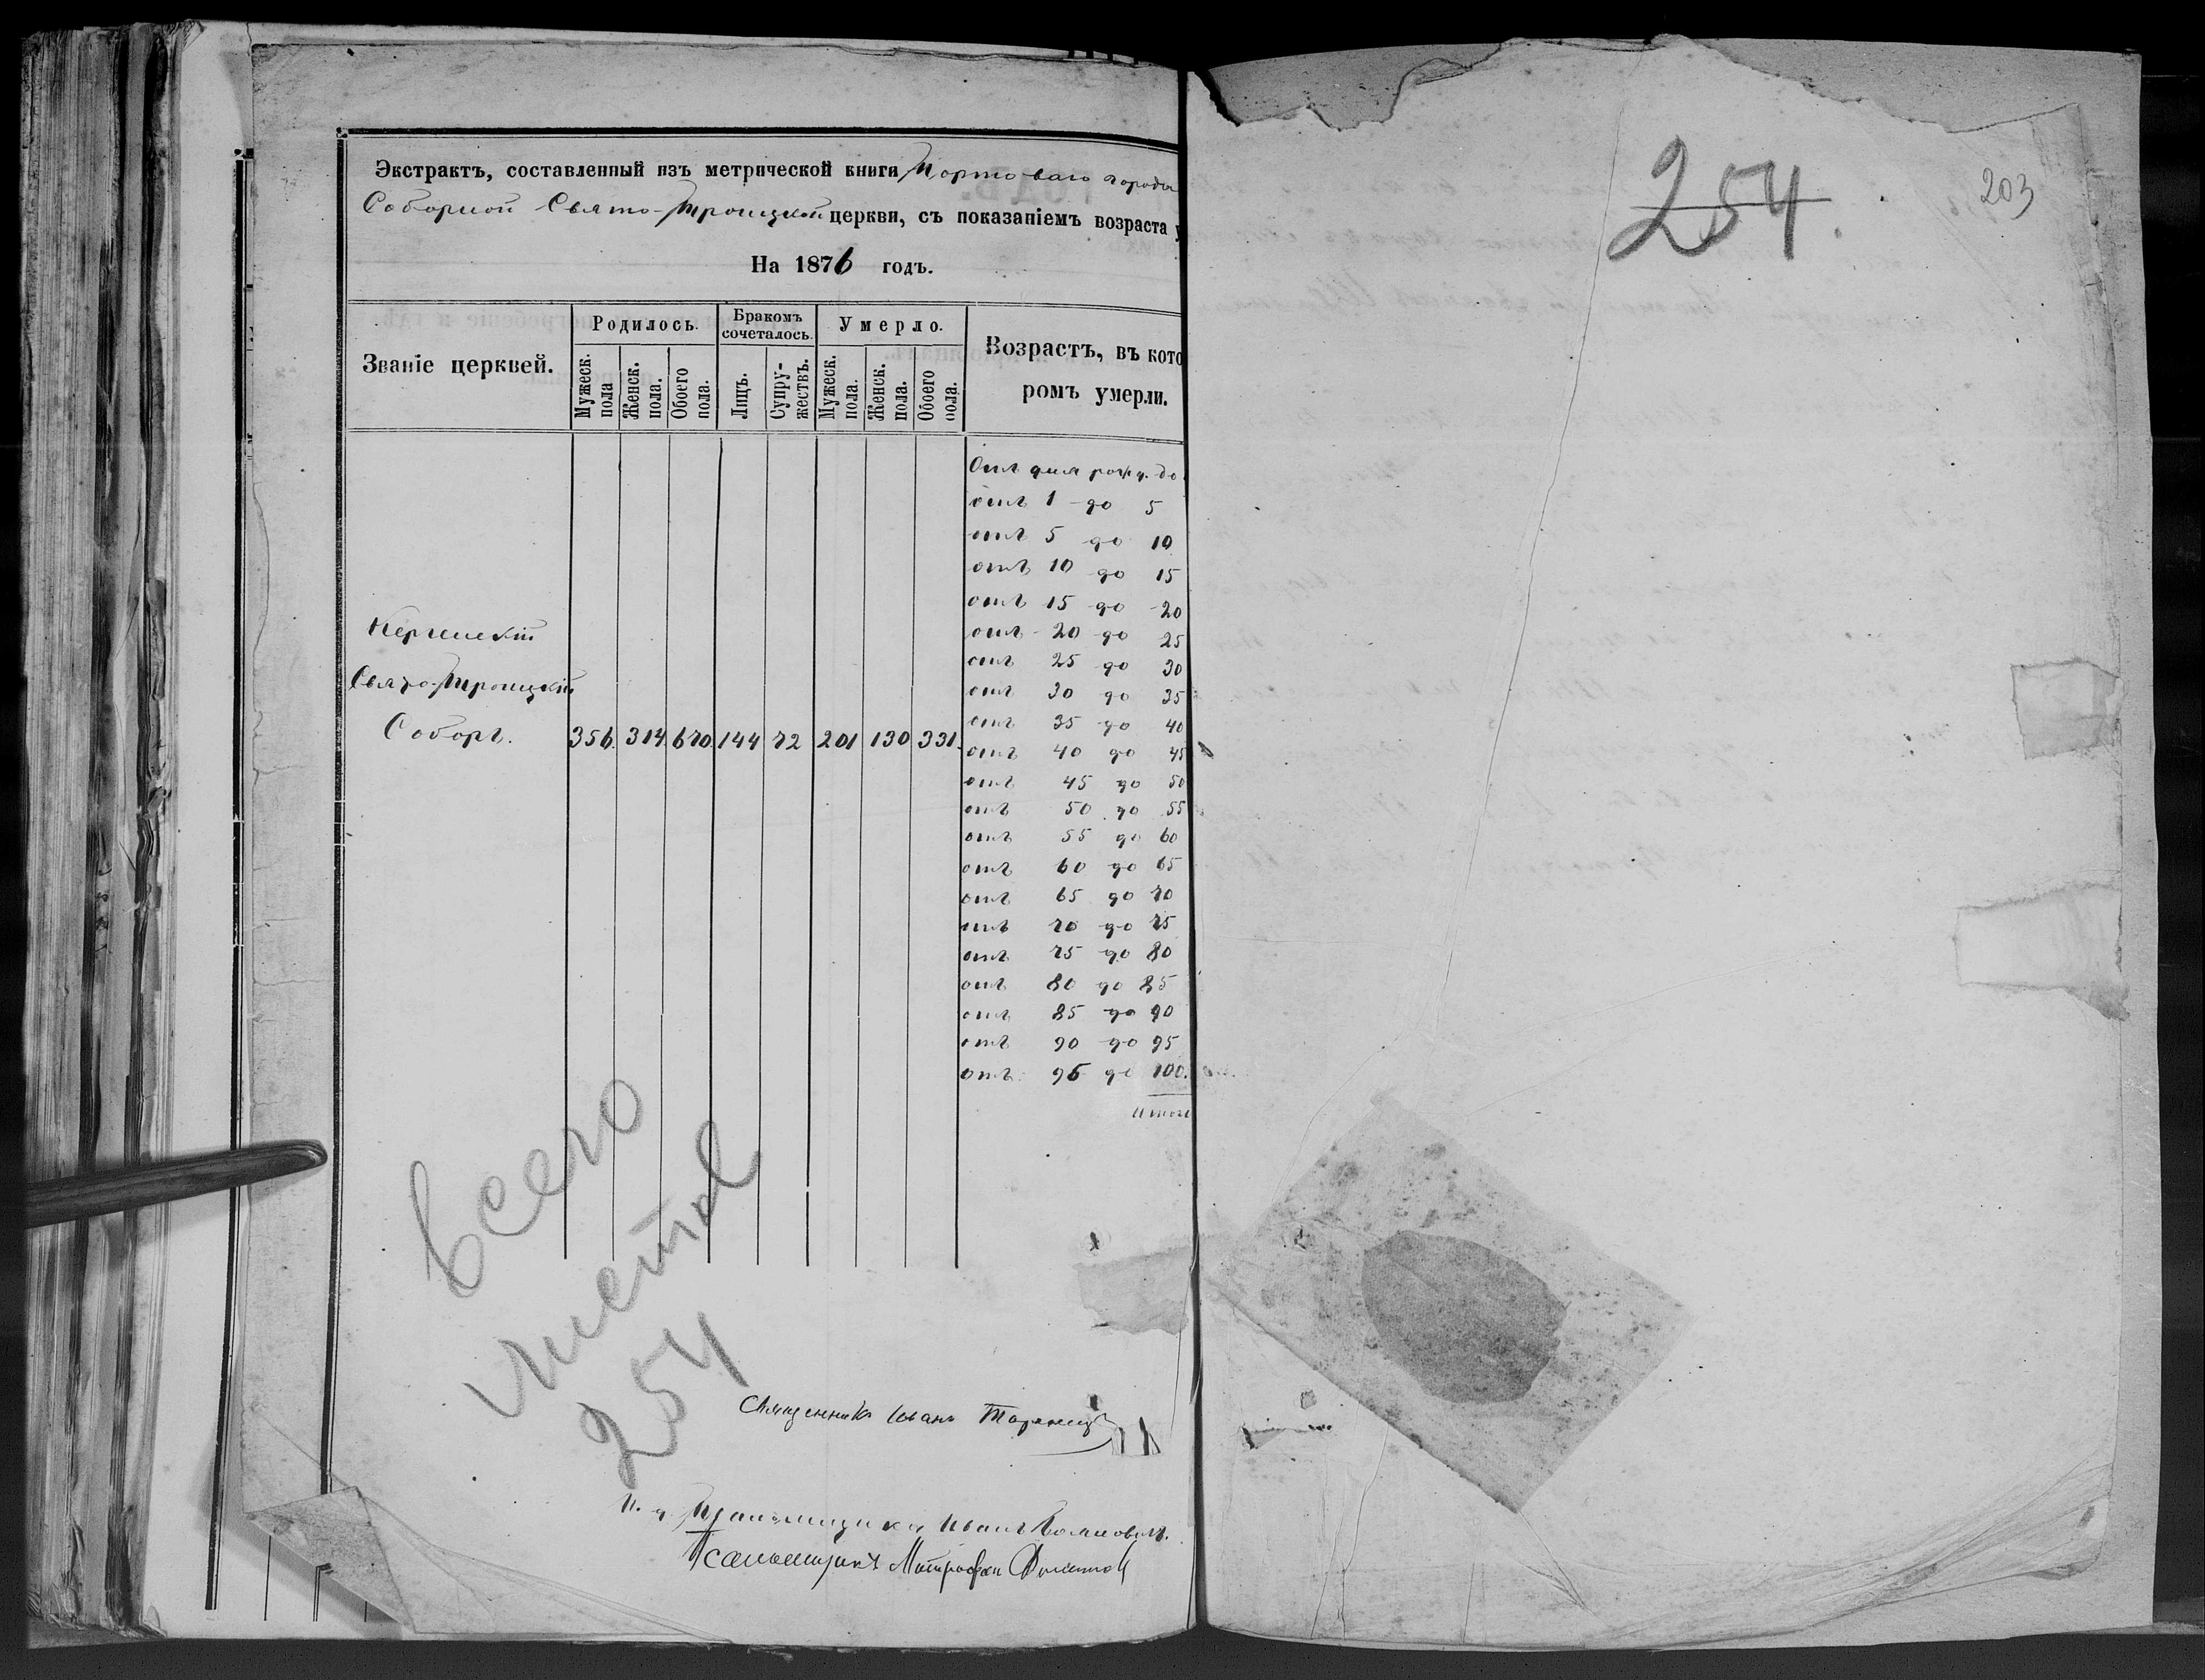 Экстрактъ, составленный изъ метрической книги Портоваго города
Соборной Свято-Троицкой церкви, съ показаніемъ возраста у
На 1876 годъ.
Званіе церквей.
Родилось.
Бракомъ сочеталось.
Умерло.
Возрастъ, въ кото
ромъ умерли.
Мужеск. пола
Женск. пола.
Обоего пола.
Лицъ.
Супружествъ.
Мужеск. пола.
Женск. пола.
Обоего пола.
Отъ дня рожд. до
отъ 1 до 5
отъ 5 до 10
отъ 10 до 15
отъ 15 до 20
отъ 20 до 25
отъ 25 до 30
отъ 30 до 35
отъ 35 до 40
отъ 40 до 45
отъ 45 до 50
отъ 50 до 55
отъ 55 до 60
отъ 60 до 65
отъ 65 до 70
отъ 70 до 75
отъ 75 до 80
отъ 80 до 85
отъ 85 до 90
отъ 90 до 95
отъ 95 до 100.
Итого
Керченскій
Свято-Троицкій
Соборъ. 356. 314 670 144 72 201 130 331.
всего
листов
254
Священникъ Іоаннъ
И. д. Псаломщика Иванъ
Псаломщикъ Митрофан
254.
203